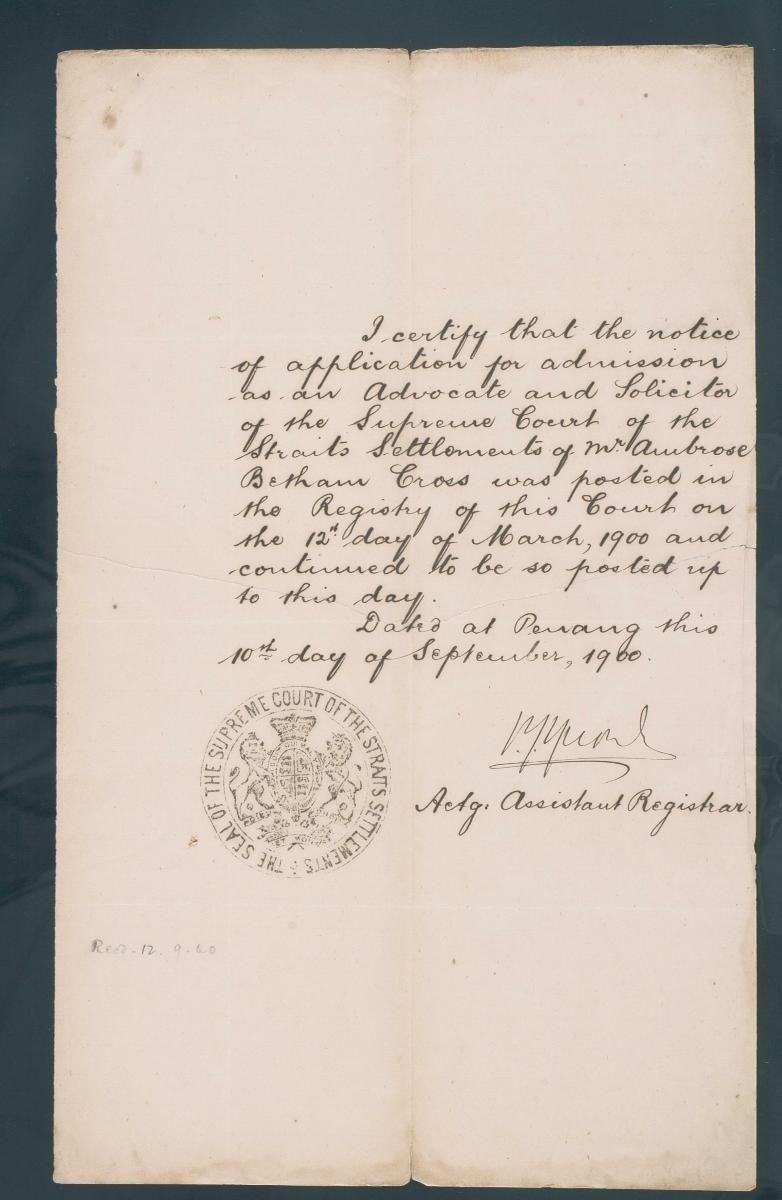 I certify that the notice
of application for admission
as an Advocate and Solicitor
of the Supreme Court of the
Straits Settlements of Mr. Ambrose
Betham Cross was posted in
the Registry of this Court on
the 12th day of March, 1900 and
continued to be so posted up
to this day.
Dated at Penang this
10th day of September, 1900.
THE SEAL OF THE SUPREME COURT OF THE STRAITS SETTLEMENTS
Actg. Assistant Registrar.
Recd. 12. 9. 00